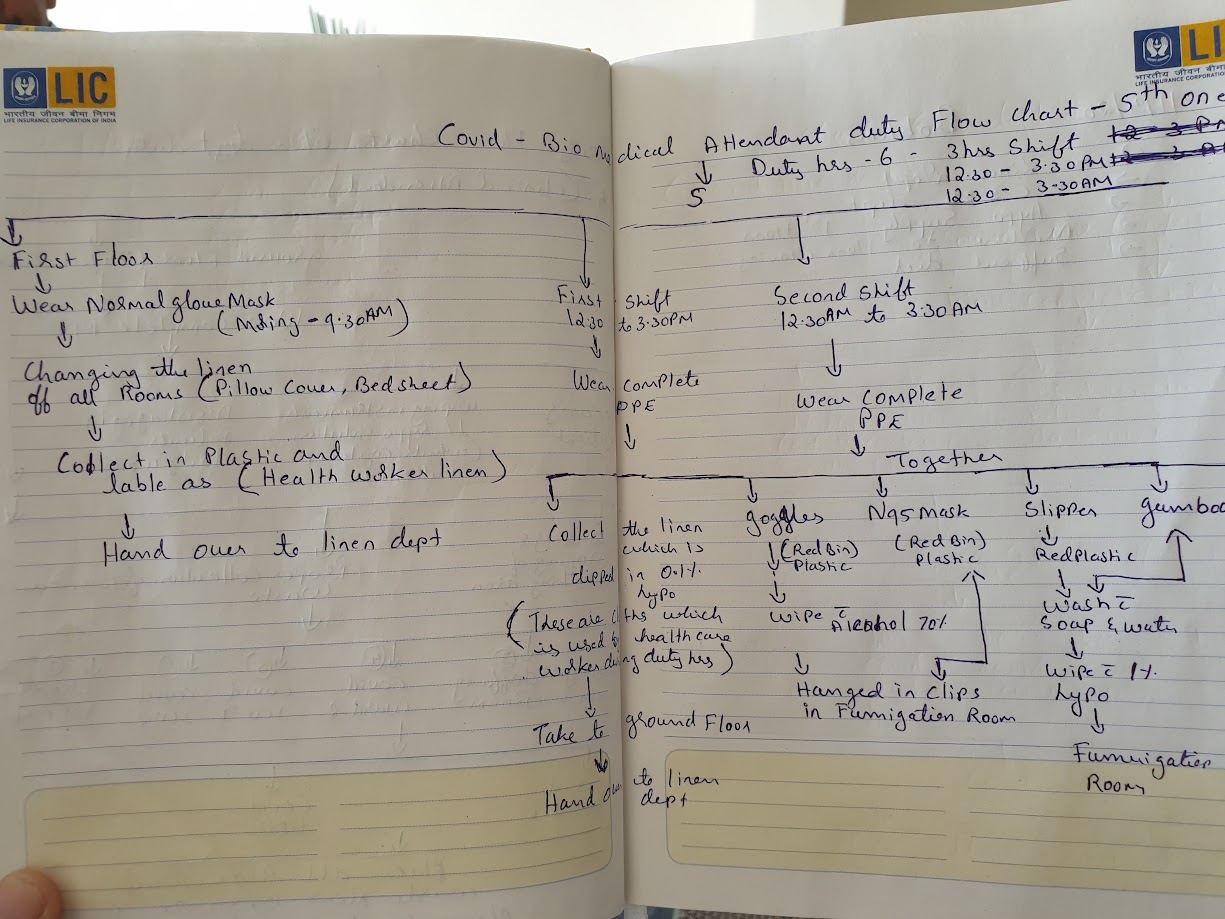 LIC
भारतीय जीवन बीमा निगम
LIFE INSURANCE CORPORATION OF INDIA
LI
भारतीय जीवन बीमा
LIFE INSURANCE CORPORATION
Covid - Bio medical Attendant duty Flow chart - 5th One
5
Duty hrs - 6 - 3hrs Shift
12.30 - 3.30 PM
12.30 - 3.30 AM
First Floor
Wear Normal glove Mask
(Mring - 9.30 AM)
Changing the linen
off all Rooms (Pillow Cover, Bed sheet)
Collect in Plastic and
lable as (Health worker linen)
Hand over to linen dept
First Shift
12.30 to 3.30PM
Wear complete
PPE
Second Shift
12.30AM to 3.30 AM
Wear complete
PPE
Together
Collect the linen
which is
dipped in 0.1%
hypo
(These are
ths which
is used
healthcare
worker during duty hrs)
Take to ground Floor
Hand over to linen
dept
goggles
(Red Bin)
Plastic
wipe c̄
Alcohol 70%
N95 Mask
(Red Bin)
Plastic
Hanged in Clips
in Fumigation Room
Slipper
Red Plastic
Wash c̄
Soap & water
Wipe c̄ 1%
hypo
Fumigation
Room
gumboo